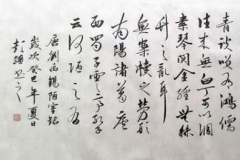 青談笑有鴻儒
往来無白丁可以調
素琴閱金經無絲
竹之亂耳
無案牘之勞形
南陽諸葛廬
西蜀子雲亭孔子
云何陋之有
唐劉禹錫陋室銘
歲次癸巳年夏日